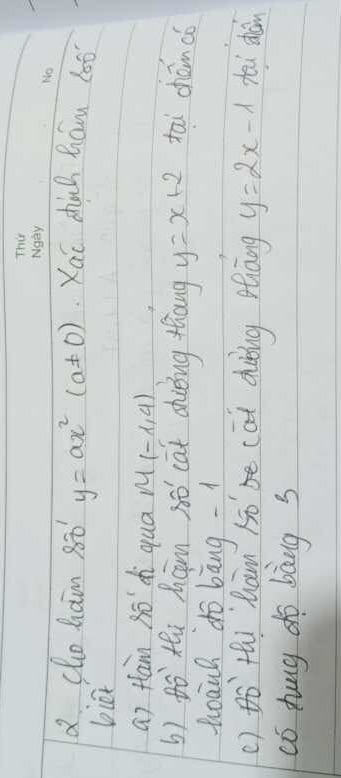 Thứ
Ngày
No
2 Cho hàm số y = ax² (a ≠ 0). Xác định hàm số
biết
a) Hàm số đi qua M(-1,4)
b) Đồ thị hàm số cắt đường thẳng y = x+2 tại điểm có
hoành độ bằng -1
c) Đồ thị hàm số cắt đường thẳng y = 2x - 1 tại điểm
có tung độ bằng 3